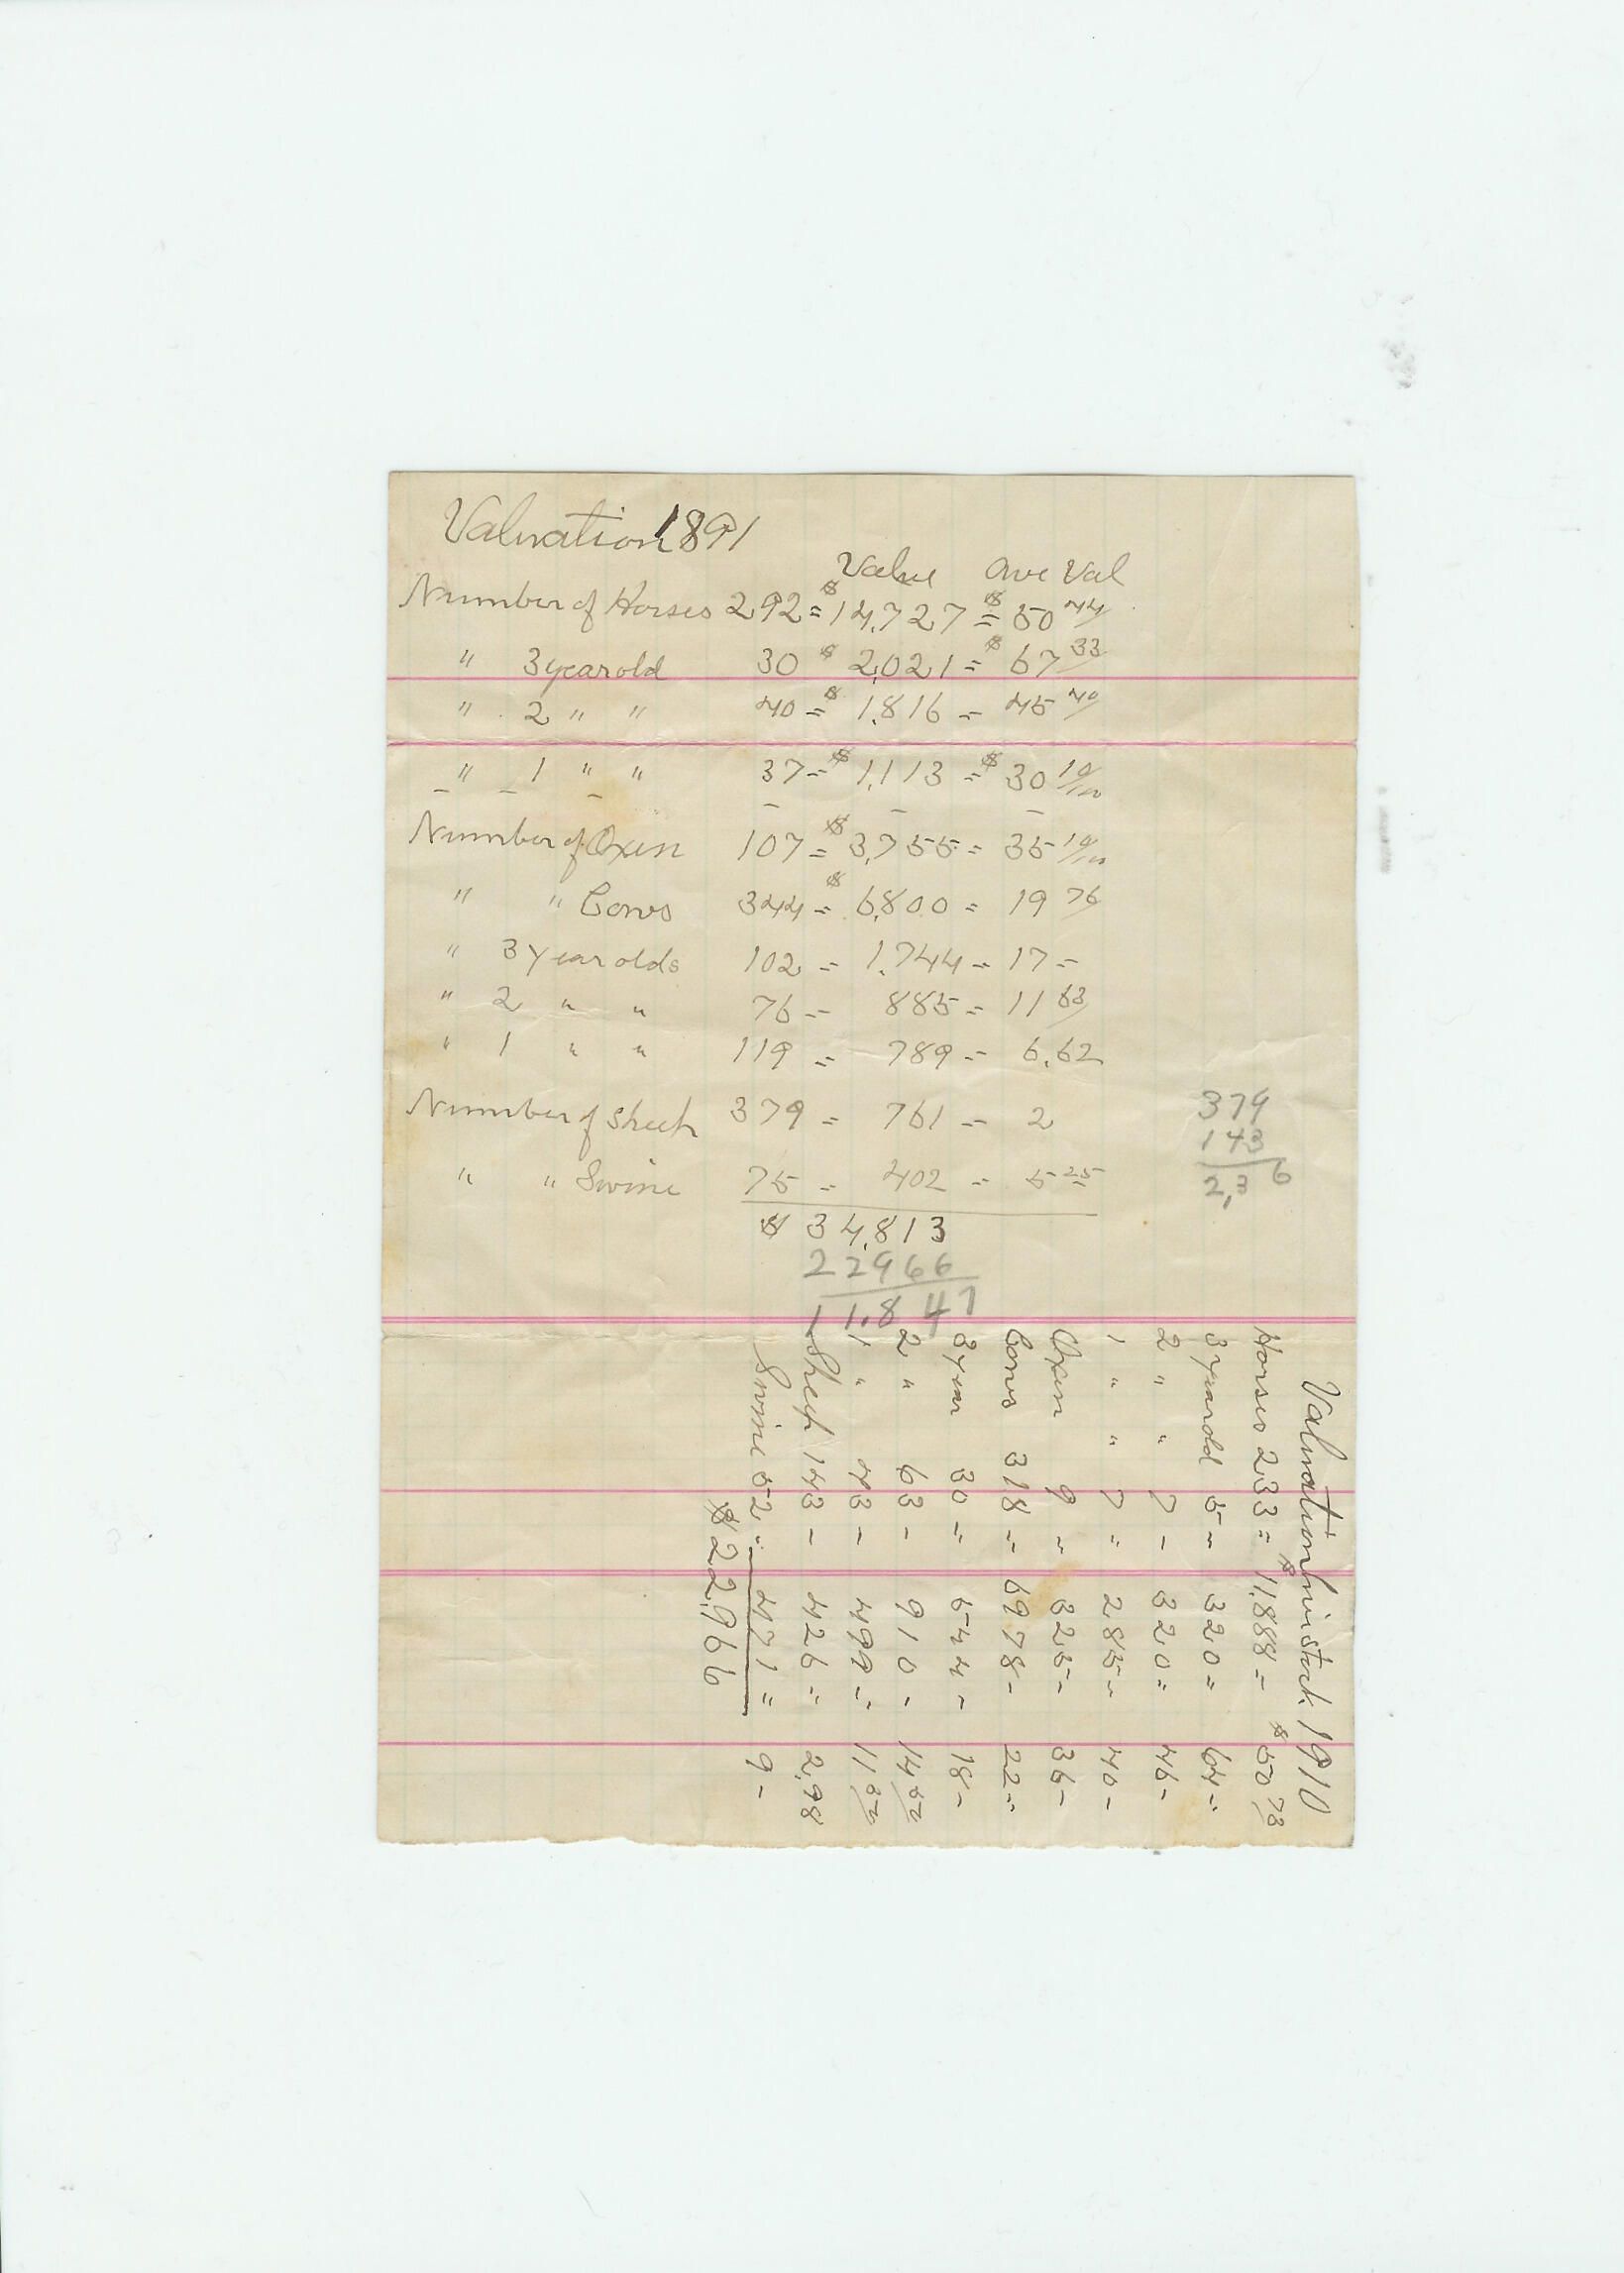 Valuation 1891
Value Ave Val
Number of Horses 292 = $14,727 = $50 44/
" 3 year old 30 $ 2,021 = $ 67 33/
" 2 " " 40 = $ 1,816 = 45 40/
" 1 " " 37 = $ 1,113 = $ 30 10/100
Number of Oxen 107 = $ 3,755 = 35 10/100
" " Cows 344 = $ 6,800 = 19 76/
" 3 year olds 102 = 1,744 = 17 =
" 2 " " 76 = 885 = 11 63/
" 1 " " 119 = 789 = 6.62
Number of Sheep 379 = 761 = 2
" " Swine 75 = 402 = 5 25
$ 34,813
22966
11,847
379
143
2,36
Valuation live stock 1910
Horses 233 = $11,888 = $50 78/
3 year old 5 = 320 = 64 =
2 " " 7 - 320 = 46 -
1 " " 7 = 285 = 40 -
Oxen 9 = 325 = 36 -
Cows 318 = 6978 - 22 =
3 year 30 = 544 - 18 -
2 " 63 - 910 - 14
1 " 43 - 499 = 11
Sheep 143 - 426 = 2,98
Swine 52 = 471 = 9 -
$22,966